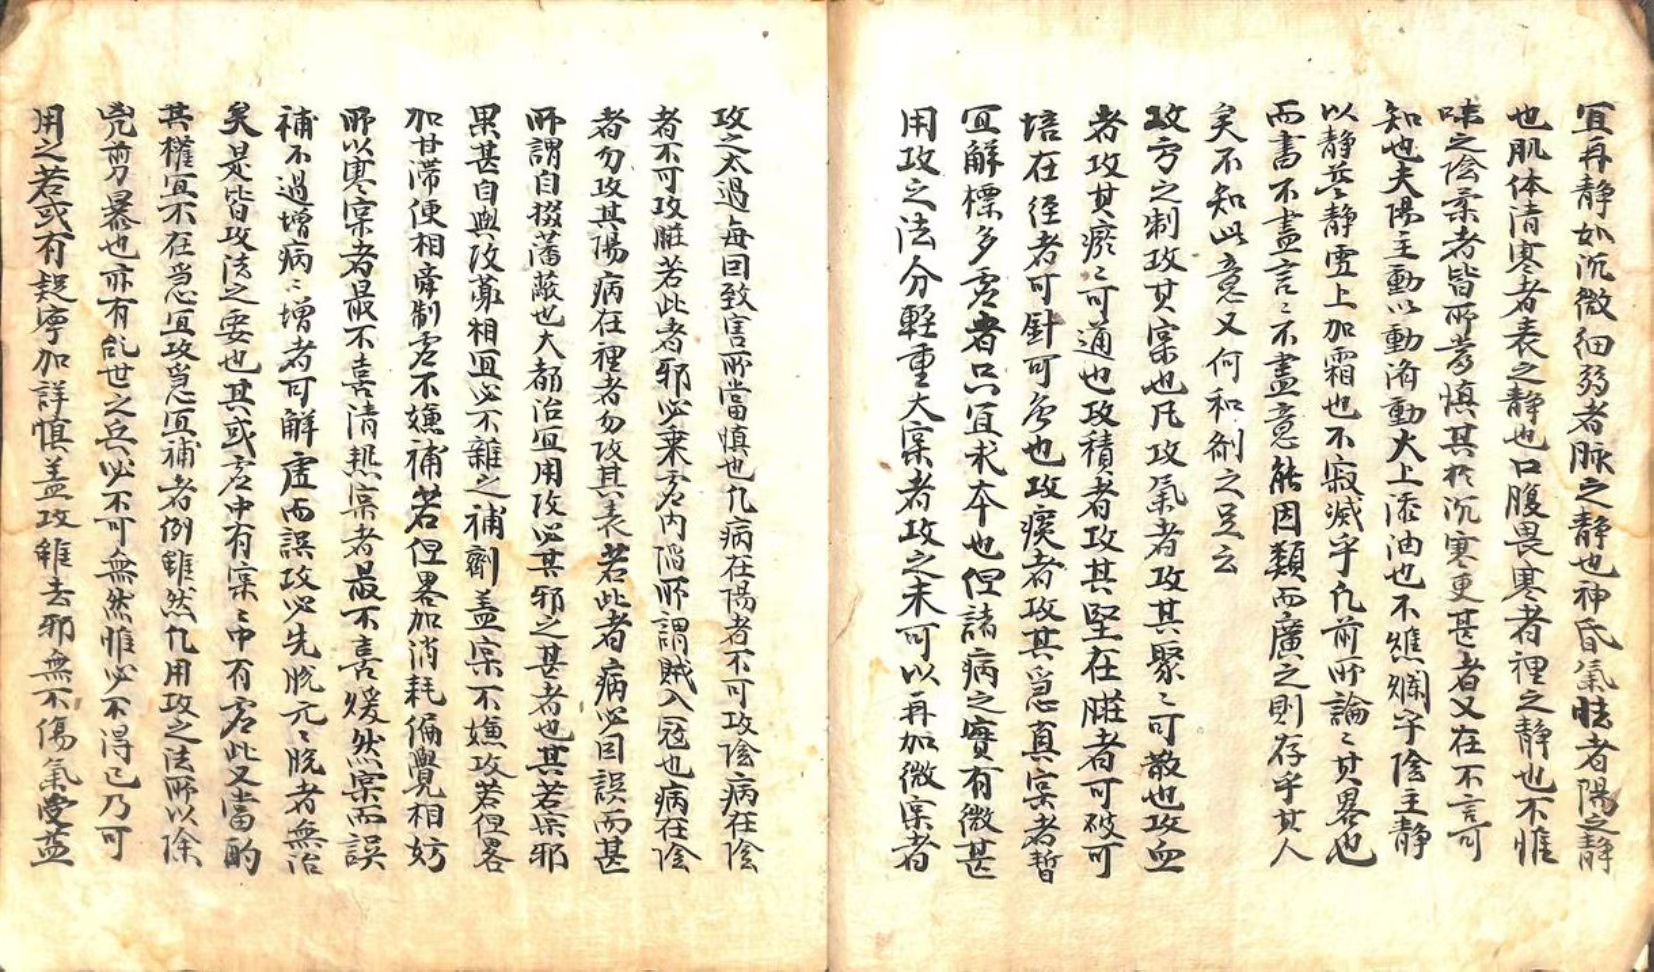 宜再静如沉微細弱者脉之静也神昏氣怯者陽之静
也肌体清寒者表之静也口腹畏寒者裡之静也不惟
味之陰柔者皆所當慎其於沉寒更甚者又在不言可
知也夫陽主動以動済動火上添油也不焦爛乎陰主静
以静益静雪上加霜也不寂滅乎凢前所論〻其畧也
而書不盡言〻不盡意能因類而廣之則存乎其人
矣不知此意又何和劑之足云
攻方之制攻其寔也凡攻氣者攻其聚〻可散也攻血
者攻其瘀〻可通也攻積者攻其堅在臟者可破可
培在徑者可針可灸也攻痰者攻其急真寔者暫
宜解標多虛者只宜求本也但諸病之實有微甚
用攻之法分輕重大寔者攻之未可以再加微寔者
攻之太過每因致害所當慎也凢病在陽者不可攻陰病在陰
者不可攻臟若此者邪必乗虛内陷所謂賊入冦也病在陰
者勿攻其陽病在裡者勿攻其表若此者病必因誤而甚
所謂自掇藩蔽也大都治宜用攻必其邪之甚者也其若寔邪
果甚自與攻薬相宜必不雜之補劑盖寔不嫌攻若但畧
加甘滞便相牵制虛不嫌補若但畧加消耗偏覺相妨
所以寒寔者最不喜清热寔者最不喜煖然寔而誤
補不過增病〻增者可解虛而誤攻必先脱元〻脱者無治
矣是皆攻法之要也其或虛中有寔〻中有虛此又當酌
其權宜不在急宜攻急宜補者例雖然凢用攻之法所以除
兇剪暴也亦有乱世之兵必不可無然惟必不得已乃可
用之若或有疑寧加詳慎盖攻雖去邪無不傷氣受益